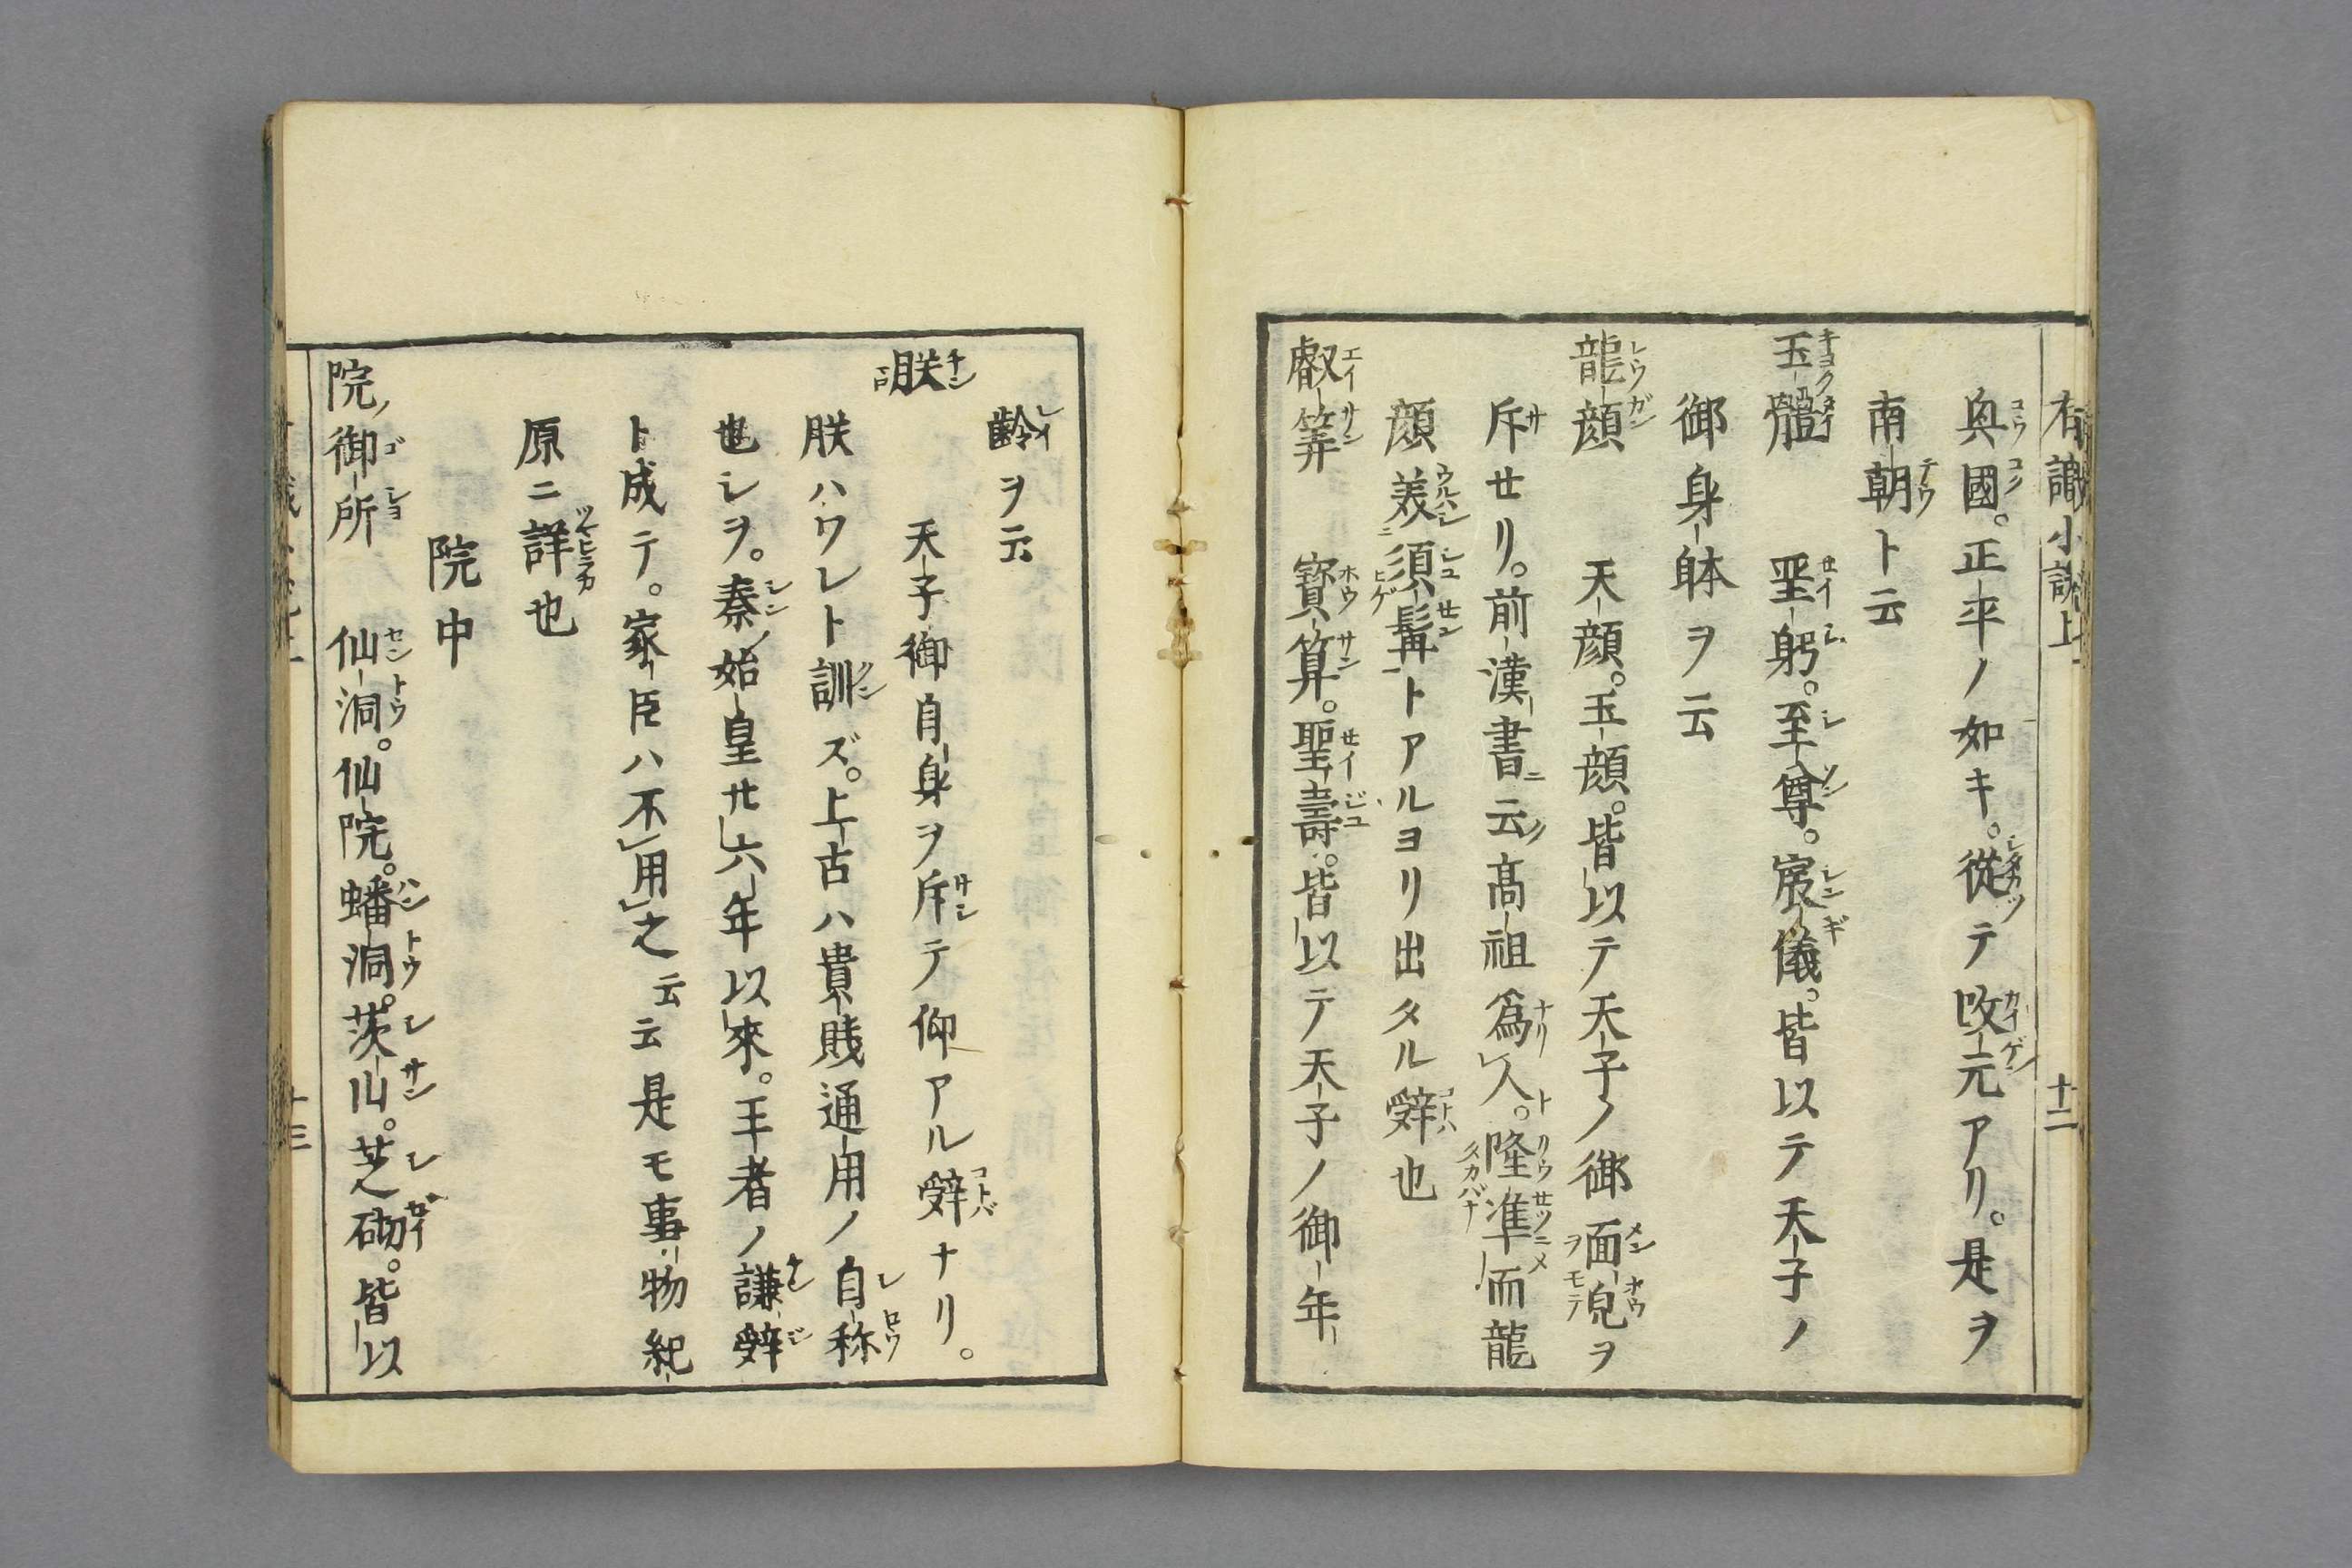 有識小説上 十二
興國。正平ノ如キ。從テ改元アリ。是ヲ
南朝ト云
玉體 聖躬。至尊。宸儀。皆以テ天子ノ
御身体ヲ云
龍顔 天顔。玉顔。皆以テ天子ノ御面皃ヲ
斥セリ。前漢書ニ云ク髙祖爲人。隆準而龍
顔美須髯トアルヨリ出タル辤也
叡筭 寳算。聖壽。皆以テ天子ノ御年
齡ヲ云
朕 天子御自身ヲ斥テ仰アルヿ辤ナリ。
朕ハワレト訓ズ。上古ハ貴賎通用ノ自称
也シヲ。秦ノ始皇廿六年以來。王者ノ謙辤
ト成テ。家臣ハ不用之云云是モ事物紀
原ニ詳也
院中
院ノ御所 仙洞。仙院。蟠洞。茨山。芝砌。皆以
十三